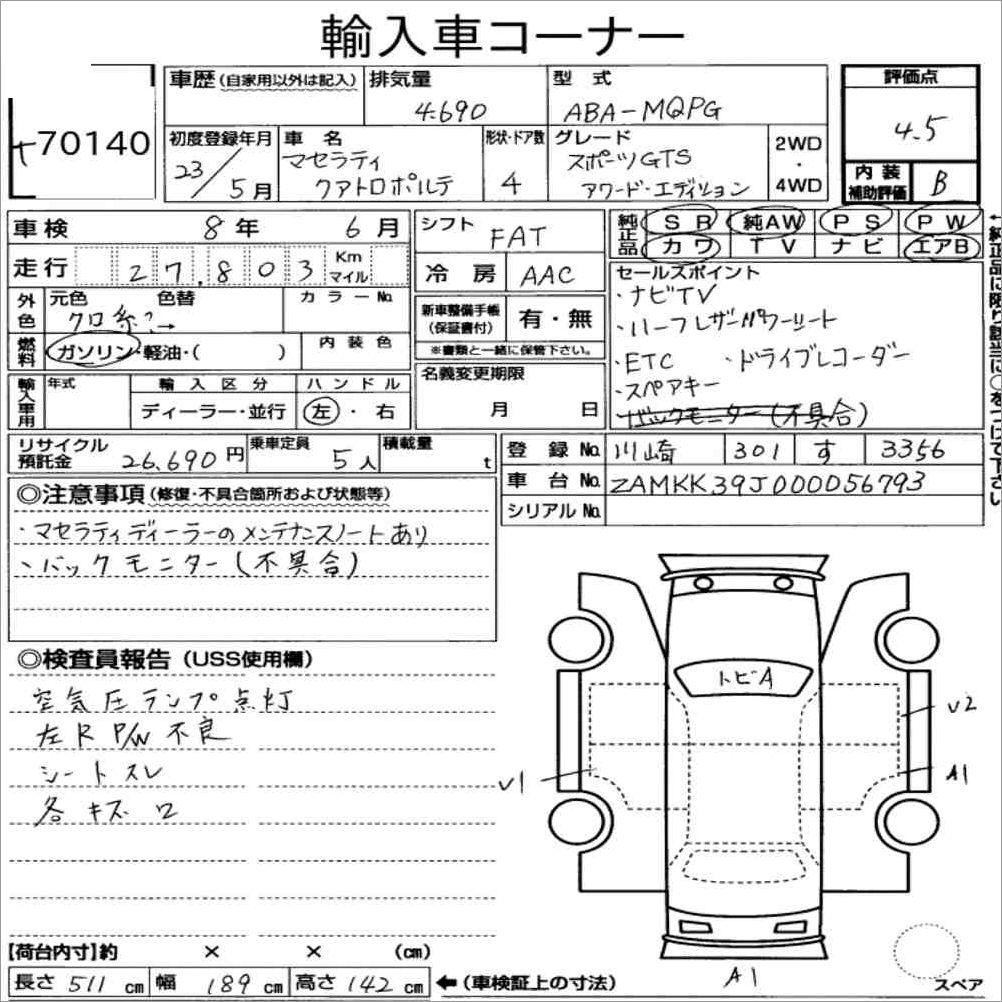 輸入車コーナー
70140
車歴(自家用以外は記入) 排気量 型式 評価点
4.690 ABA-MQPG 4.5
初度登録年月 車名 形状・ドア数 グレード 2WD・4WD
23/5月 マセラティ クアトロポルテ 4 スポーツGTS アワード・エディション
内装補助評価 B
車検 8年 6月
シフト FAT
純正品 SR 純AW PS PW
カワ TV ナビ エアB
走行 27,803 Km マイル
冷房 AAC
セールスポイント
・ナビTV
・ハーフレザーパワーシート
・ETC ・ドライブレコーダー
・スペアキー
・バックモニター(不具合)
外色 元色 色替 カラーNo.
クロ系
新車整備手帳(保証書付) 有・無
※書類と一緒に保管下さい。
燃料 ガソリン・軽油・( ) 内装色
名義変更期限
月 日
輸入車用 年式 輸入区分 ハンドル
ディーラー・並行 左・右
リサイクル預託金 26,690円 乗車定員 5人 積載量 t
登録No. 川崎 301 す 3356
車台No. ZAMKK39J000056793
シリアルNo.
◎注意事項(修復・不具合箇所および状態等)
・マセラティディーラーのメンテナンスノートあり
・バックモニター(不具合)
◎検査員報告(USS使用欄)
空気圧ランプ点灯
左R P/W不良
シートスレ
各キズ
トビA
V2
V1
A1
A1
【荷台内寸】約 × × (cm)
長さ 511 cm 幅 189 cm 高さ 142 cm ←(車検証上の寸法)
スペア